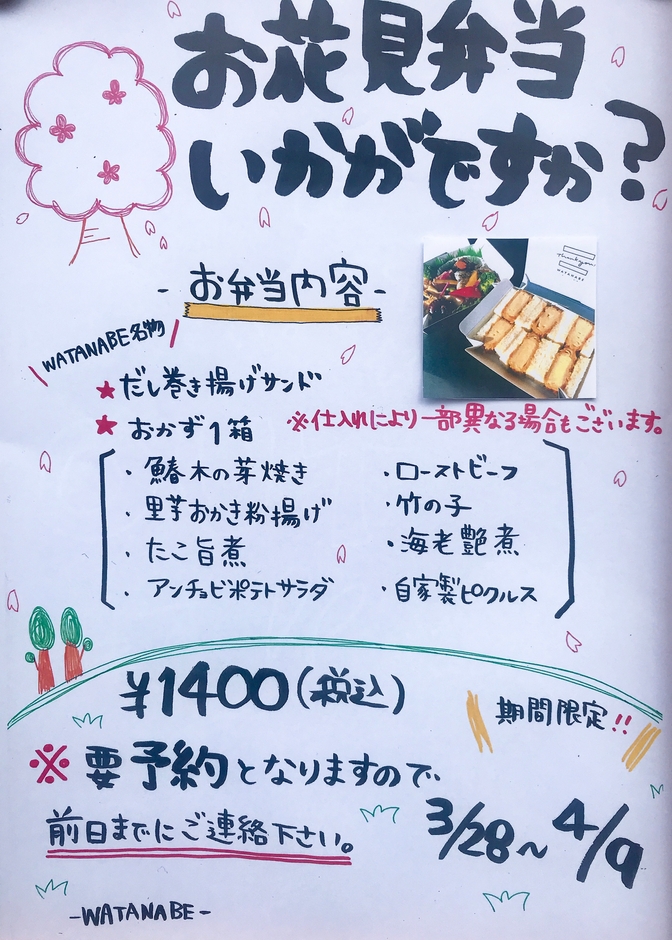 お花見弁当
いかがですか?
- お弁当内容 -
Thank you
WATANABE
WATANABE名物
★だし巻き揚げサンド
★おかず1箱
※仕入れにより一部異なる場合もございます。
・鰆木の芽焼き
・里芋おかき粉揚げ
・たこ旨煮
・アンチョビポテトサラダ
・ローストビーフ
・竹の子
・海老艶煮
・自家製ピクルス
¥1400(税込)
期間限定!!
※要予約となりますので、
前日までにご連絡下さい。
3/28~4/9
-WATANABE-